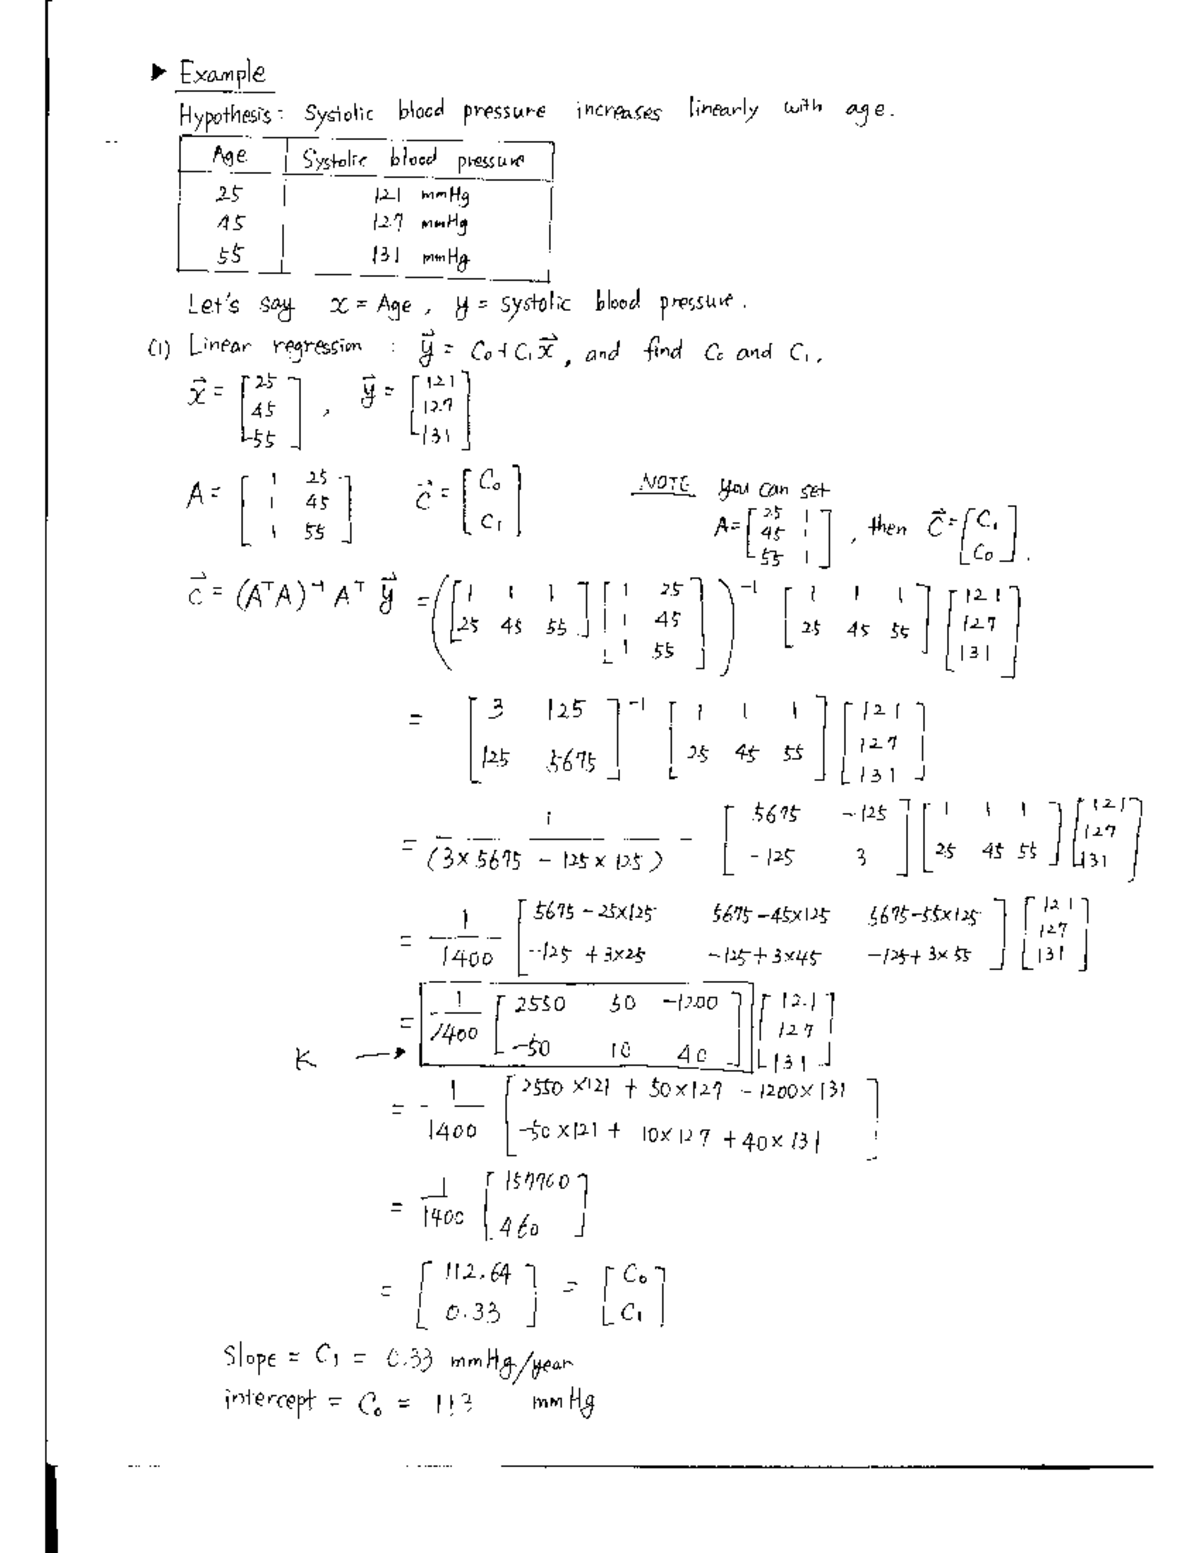 ▶ Example
Hypothesis: Systolic blood pressure increases linearly with age.
Age | Systolic blood pressure
25 | 121 mmHg
45 | 127 mmHg
55 | 131 mmHg
Let's say x = Age, y = systolic blood pressure.
(1) Linear regression : y⃗ = C₀ + C₁x⃗, and find C₀ and C₁.
x⃗ = [25; 45; 55], y⃗ = [121; 127; 131]
A = [1 25; 1 45; 1 55] c⃗ = [C₀; C₁] NOTE you can set
A = [25 1; 45 1; 55 1], then c⃗ = [C₁; C₀].
c⃗ = (AᵀA)⁻¹ Aᵀ y⃗ = ([1 1 1; 25 45 55] [1 25; 1 45; 1 55])⁻¹ [1 1 1; 25 45 55] [121; 127; 131]
= [3 125; 125 5675]⁻¹ [1 1 1; 25 45 55] [121; 127; 131]
= 1 / (3×5675 - 125×125) [5675 -125; -125 3] [1 1 1; 25 45 55] [121; 127; 131]
= 1/1400 [5675-25×125 5675-45×125 5675-55×125; -125+3×25 -125+3×45 -125+3×55] [121; 127; 131]
= 1/1400 [2550 50 -1200; -50 10 40] [121; 127; 131]
K →
= 1/1400 [2550×121 + 50×127 - 1200×131; -50×121 + 10×127 + 40×131]
= 1/1400 [157700; 460]
= [112.64; 0.33] = [C₀; C₁]
Slope = C₁ = 0.33 mmHg/year
intercept = C₀ = 113 mmHg